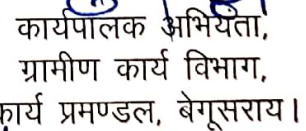 कार्यपालक अभियंता,
ग्रामीण कार्य विभाग,
कार्य प्रमण्डल, बेगूसराय।